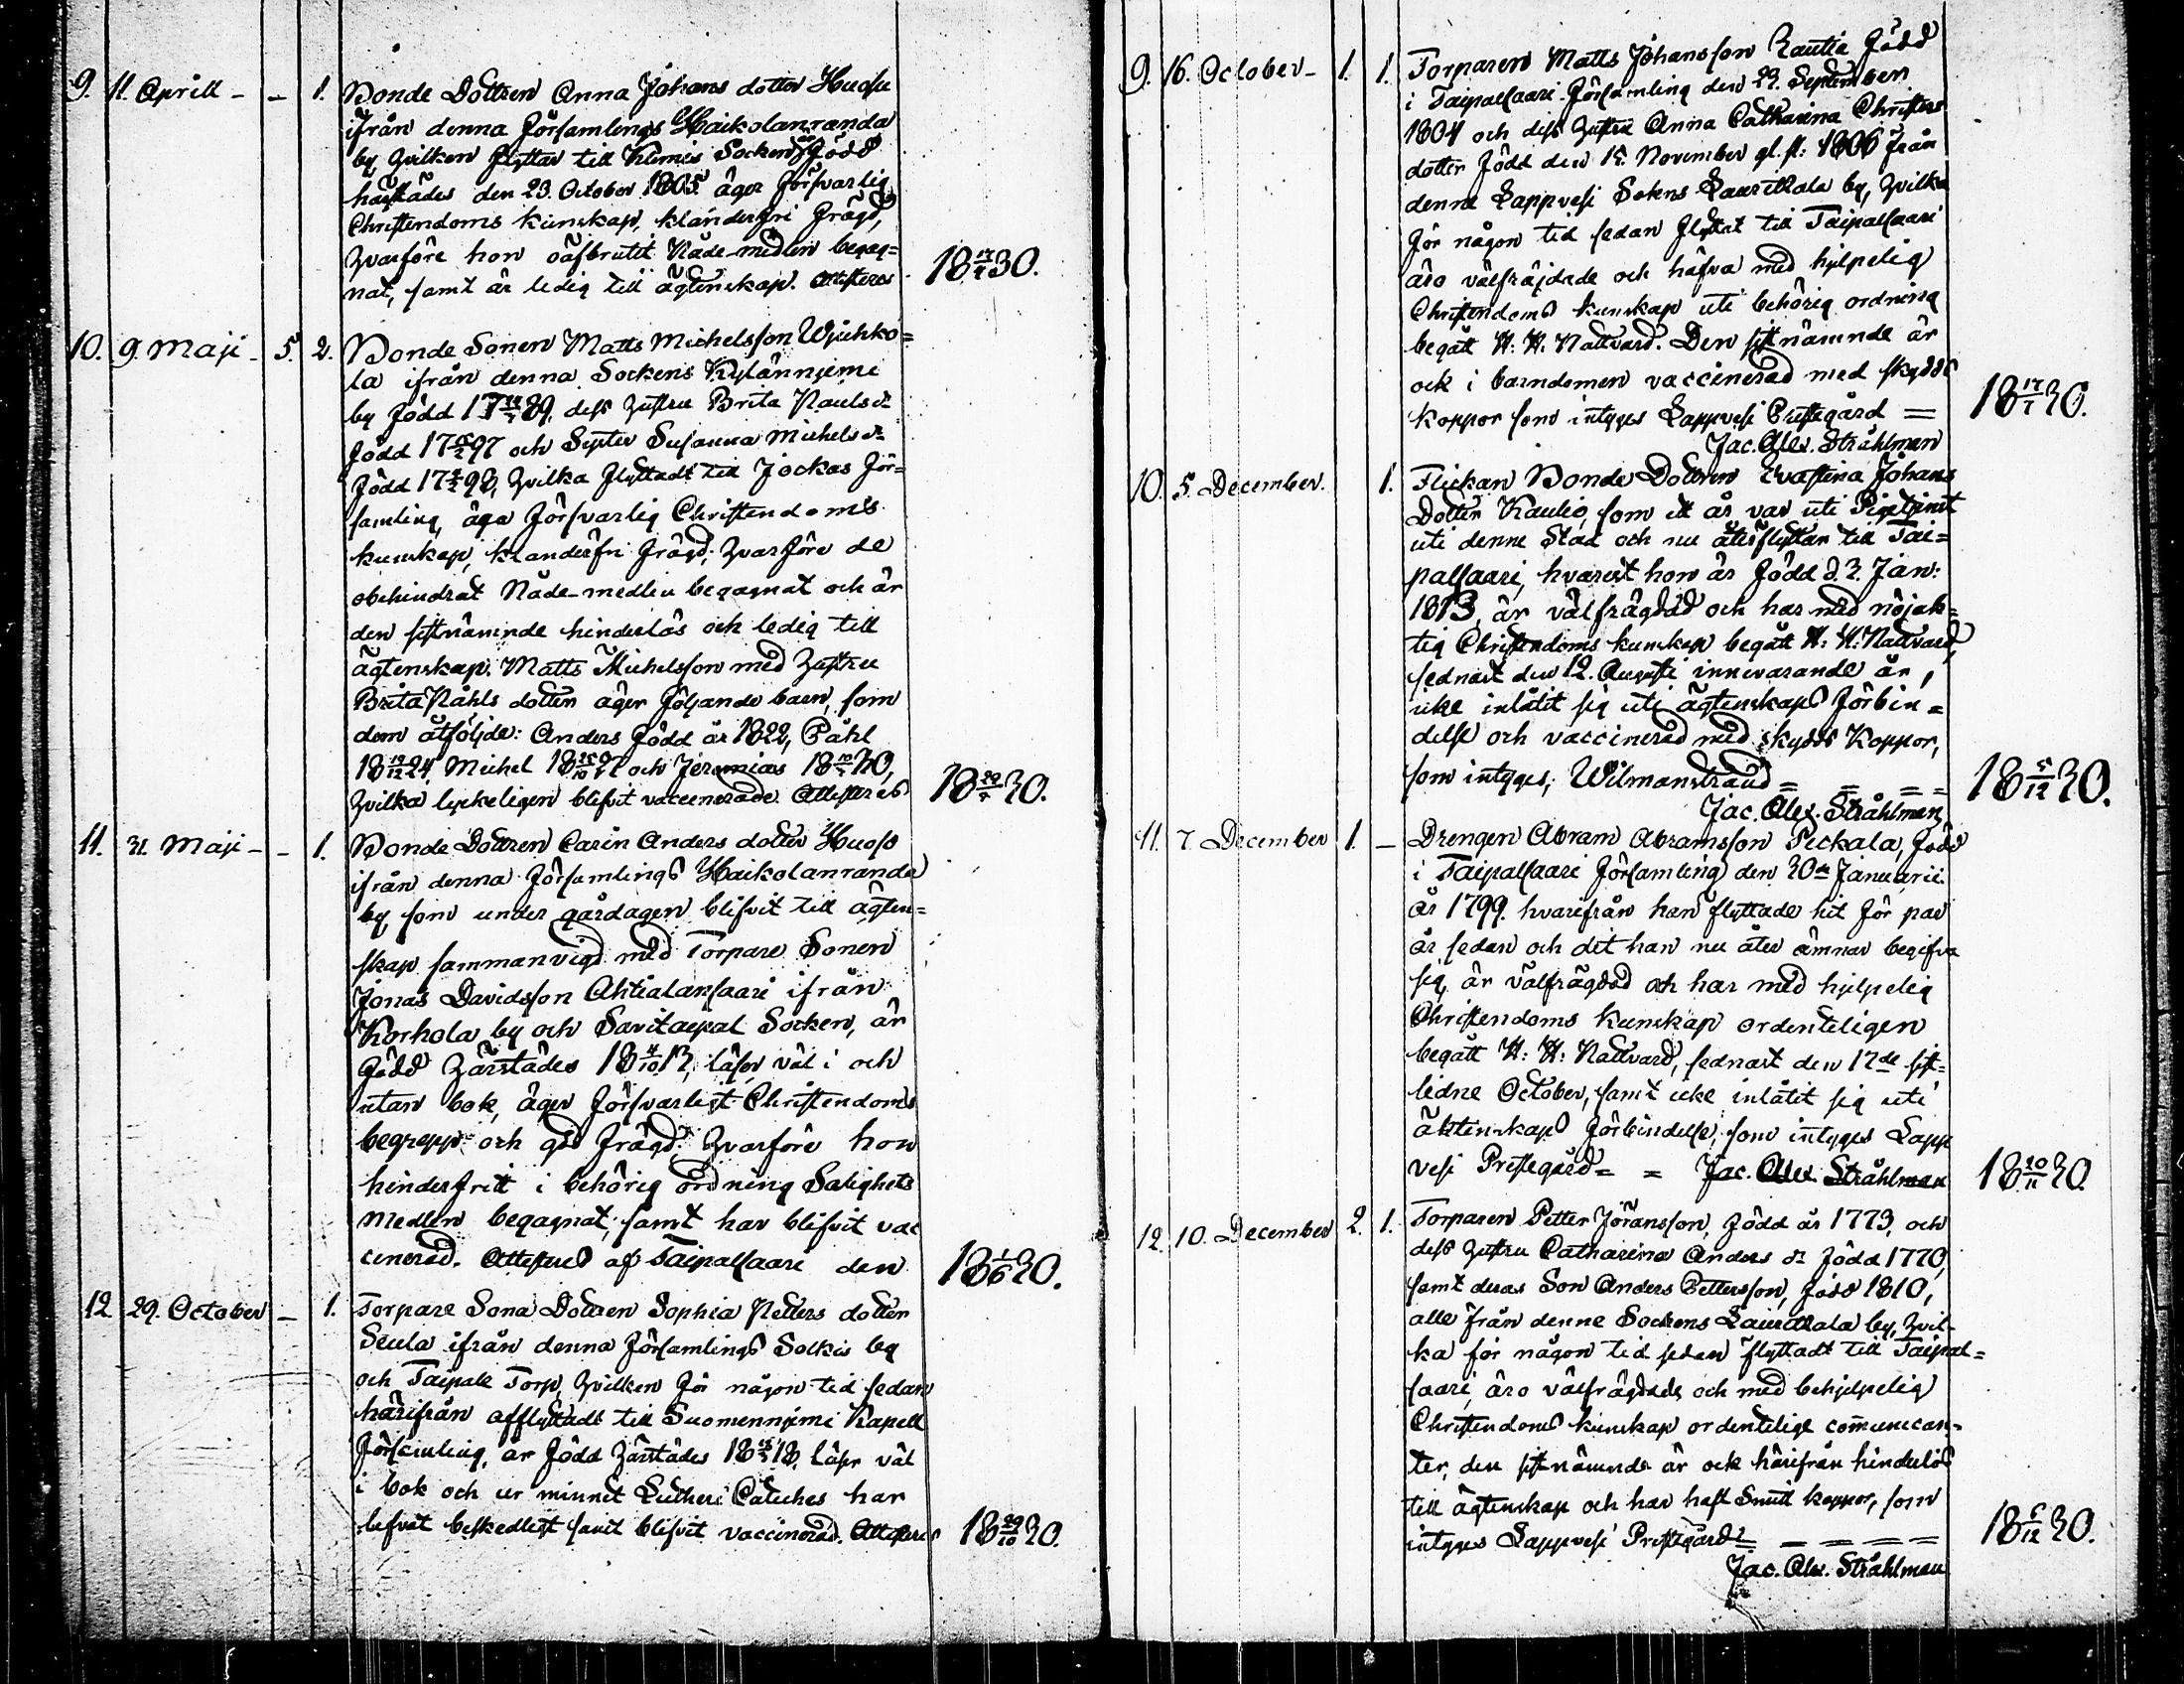 9. 11. Aprill - - 1. Bonde Dottren Anna Johans dotter Huosu
ifrån denna församlings Haikolanranda
by hvilken flyttar till Klemis Socken, född
härstädes den 23. October 1805 äger försvarlig
Christendoms kunskap, klanderfri frägd,
hvarföre hon oafbrutit Nåde-medlen begag=
nat, samt är ledig till ägtenskap. Attesteras
10. 9. Maji - 5. 2. Bonde Sonen Matts Michelsson Wjuhko=
la ifrån denna Sockens Kylänniemi
by född 17 89, dess hustru Brita Pauls dr
född 17 97 och Syster Susanna Michels dr
född 17 98, hvilka flyttadt till Jockas för=
samling, äga försvarlig Christendoms
kunskap, klanderfri frägd; hvarföre de
obehindrat Nåde-medlen begagnat och är
den sistnämnde hinderlös och ledig till
ägtenskap. Matts Michelsson med hustru
Brita Påhls dotter äger följande barn, som
dem åtföljde: Anders född år 1822, Påhl
18 19/12 24, Michel 18 och Jeremias 18 30,
hvilka lyckeligen blifvit vaccinerade. Attesteras
18 30.
11. 31. Maji - - 1. Bonde Dottren Carin Anders dotter Huoso
ifrån denna församlings Haikolanranda
by, som under gårdagen blifvit till ägten=
skap sammanvigd med Torpare Sonen
Jonas Davidsson Ahtialansaari ifrån
Korhola by och Savitaipal Socken, är
född härstädes 18 4/10 13, läser väl i och
utan bok, äger försvarligt Christendoms
begrepp och god frägd. hvarföre hon
hinderfritt i behörig ordning Salighets
medlen begagnat, samt har blifvit vac
cinerad. Attesteras af Taipalsaari den
18 1/6 30.
12 29. October - 1. Torpare Sona Dottren Sophia Petters dotter
Seula ifrån denna församlings Solkis by
och Taipale Torp, hvilken för någon tid sedan
härifrån afflyttadt till Suomenniemi Kapell
församling, är född härstädes 18 18, läser väl
i bok och ur minnet Lutheri Catuches har
lefvat beskedligt samt blifvit vaccinerad. Attesteras
18 29/10 30.
9. 16. October - 1. 1. Torparen Matts Johansson Rautia född
i Taipalsaari församling den 29. September
1804 och dess hustru Anna Catharina Christers
dotter född den 15. November gl. st: 1806 från
denne Lappvesi Sokns Lauritsala by, hvilka
för någon tid sedan flyttat till Taipalsaari
äro välfräjdade och hafva med hjelpelig
Christendoms kunskap uti behörig ordning
begått H: H. Nattvard. Den sistnämnde är
ock i barndomen vaccinerad med skydds
koppor som intyges Lappvesi Prestegård =
Jac. Alex. Stråhlman
18 17/7 30.
10. 5. December. 1. Flickan Bonde Dottren Evastina Johans
Dotter Kaulio, som ett år var uti Pigtjenst
uti denne Stad och nu återflyttar till Tai=
palsaari, hvarest hon är född d. 3. Jan:
1813, är välfrägdad och har med nöjak=
tig Christendoms kunskap begått H: H: Nattvard,
sednast den 12. Augusti innevarande år,
icke inlåtit sig uti ägtenskaps förbin=
delse och vaccinerad med skydds Koppor,
som intyges; Wilmanstrand = = = =
Jac. Alex. Stråhlman
18 5/12 30.
11. 7. December 1. - Drengen Abram Abramsson Peckala, född
i Taipalsaari församling den 30de Januarii
år 1799. hvarifrån han flyttade hit för par
år sedan och dit han nu åter ämnar begifva
sig, är välfrägdad och har med hjelpelig
Christendoms kunskap ordenteligen
begått H: H: Nattvard, sednast den 17de sist=
ledne October, samt icke inlåtit sig uti
äktenskaps förbindelse, som intyges Lapp
vesi Prestegård = = Jac. Alex. Stråhlman
18 30.
12. 10. December 2. 1. Torparen Petter Jöransson, född år 1773, och
dess hustru Catharina Anders dr född 1770,
samt deras Son Anders Pettersson, född 1810,
alle från denne Sockens Lauritsala by, hvil-
ka för någon tid sedan flyttadt till Taipal=
saari, äro välfrägdade och med behjelpelig
Christendoms kunskap ordentelige communican=
ter, den sistnämnde är ock härifrån hinderlös
till ägtenskap och har haft Smitt koppor, som
intyges Lappvesi Prestgård = - = = = =
Jac. Alex. Stråhlman
18 30.